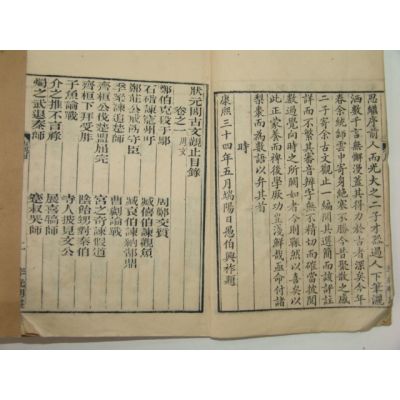 思繼序前人而光大之二子才器過人下筆灑
洒數千言無懈漫蓋其得力於古者深矣今年
春余統師雲中寄身絕塞不勝今昔聚散之感
二子寄余古文觀止一編閱其選簡而該評註
詳而不繁其審音辨字無不精切而確當披閱
數過覺向時之所闕如者今則賅然以喜矣以
此正蒙養而裨後學厥功豈淺鮮哉亟命付諸
梨棗而為數語以弁其首
時
康熙三十四年五月端陽日愚伯興祚題
狀元閣古文觀止目錄
卷之一 周文
鄭伯克段于鄢 周鄭交質
石碏諫寵州吁 臧僖伯諫觀魚
鄭莊公戒飭守臣 臧哀伯諫納郜鼎
季梁諫追楚師 曹劌論戰
齊桓公伐楚盟屈完 宮之奇諫假道
齊桓下拜受胙 陰飴甥對秦伯
子魚論戰 寺人披見文公
介之推不言祿 展喜犒師
燭之武退秦師 蹇叔哭師